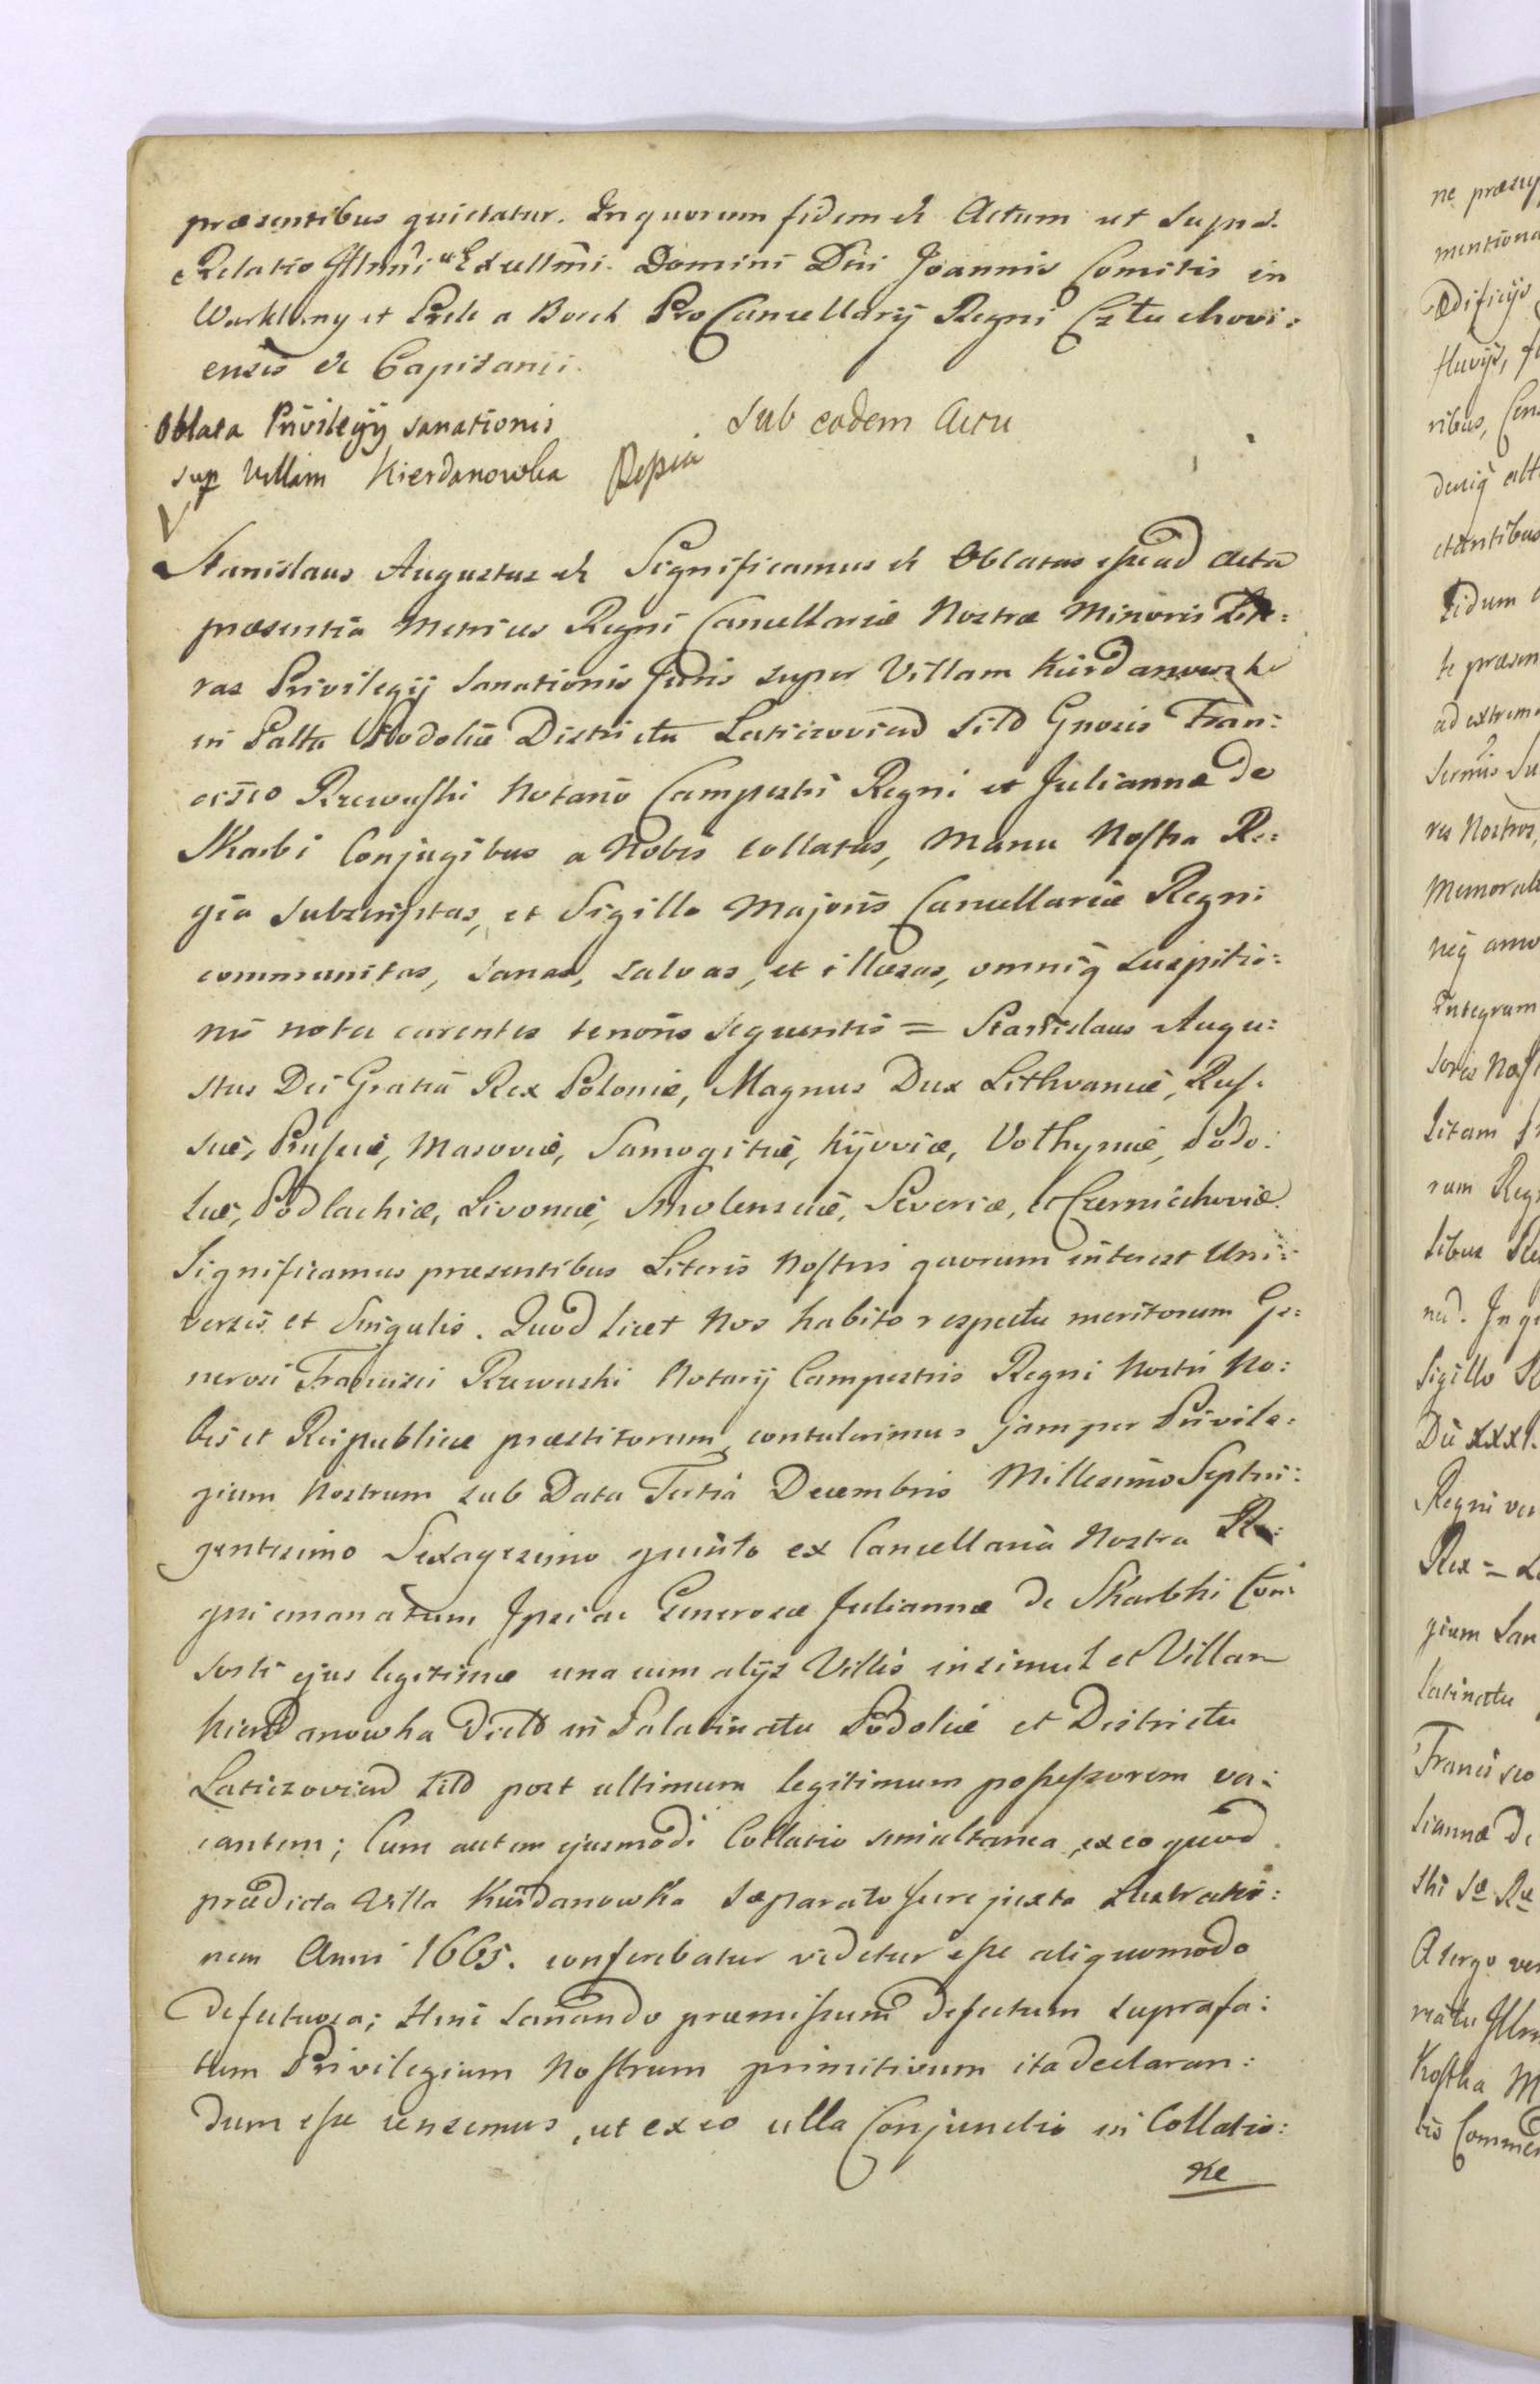 præsentibus quietatur. In quorum fidem &c Actum ut Supra.
Relatio Illmi et Excellmi. Domini Dni Joannis Comitis in
Warklany et Prele a Borch Pro Cancellarij Regni Lutu
ensis &c Capitanei.
Oblata Privilegij sanationis
sup Villam Kierdanowka
Sub eodem Actu
Stanislaus Augustus &c Significamus &c Oblatas esse ad Acta
præsentia Metrices Regni Cancellariæ Nostræ Minoris Lite:
ras Privilegij Sanationis Juris super Villam Kierdanowzka
in Palttu Podoliæ Districtu Laticzoviend Sitd Gnosis Fran:
cisco Rzewuski Notario Campestri Regni et Juliannæ de
Skarbi Conjugibus a Nobis collatas, Manu Nostra Re:
gia subscriptas, et Sigillo Majoris Cancellariæ Regni
communitas, sanas, salvas, et illæsas, omniq suspitio:
nis nota carentes tenoris sequentis = Stanislaus Augu:
stus Dei Gratiâ Rex Poloniæ, Magnus Dux Lithvaniæ, Rus:
siæ, Prussiæ, Masoviæ, Samogitiæ, Kijoviæ, Volhyniæ, Podo:
liæ, Podlachiæ, Livoniæ, Smolensciæ, Severiæ, Czerniechoviæ.
Significamus præsentibus Literis Nostris quorum interest Uni:
versis et Singulis. Quod licet Nos habito respectu meritorum Ge:
nerosi Francisci Rzewuski Notarij Campestris Regni Nostri No:
bis et Reipublicæ præstitorum contulerimus jam per Privile:
gium Nostrum sub Data Tertia Decembris Millesimo Septin:
gentesimo Sexagesimo quinto ex Cancellaria Nostra Re:
gni emanatum Ipsi ac Generosæ Juliannæ de Skarbki Con:
sorti ejus legitimæ una cum alijs Villis insimul et Villam
Kierdanowka dictd in Palatinatu Podoliæ et Districtu
Laticzoviend sitd post ultimum legitimum possessorem va:
cantem; Cum autem ejusmodi Collatio simultanea, ex eo quod
prædicta Villa Kierdanowka separato jure juxta Lustratio:
nem Anni 1665. conferebatur videtur esse aliquomodo
defectuosa; Hinc sanando præmissum defectum suprafa:
tum Privilegium Nostrum primitivum ita declaran:
dum esse censemus, ut ex eo ulla Conjunctio in Collatio:
ne